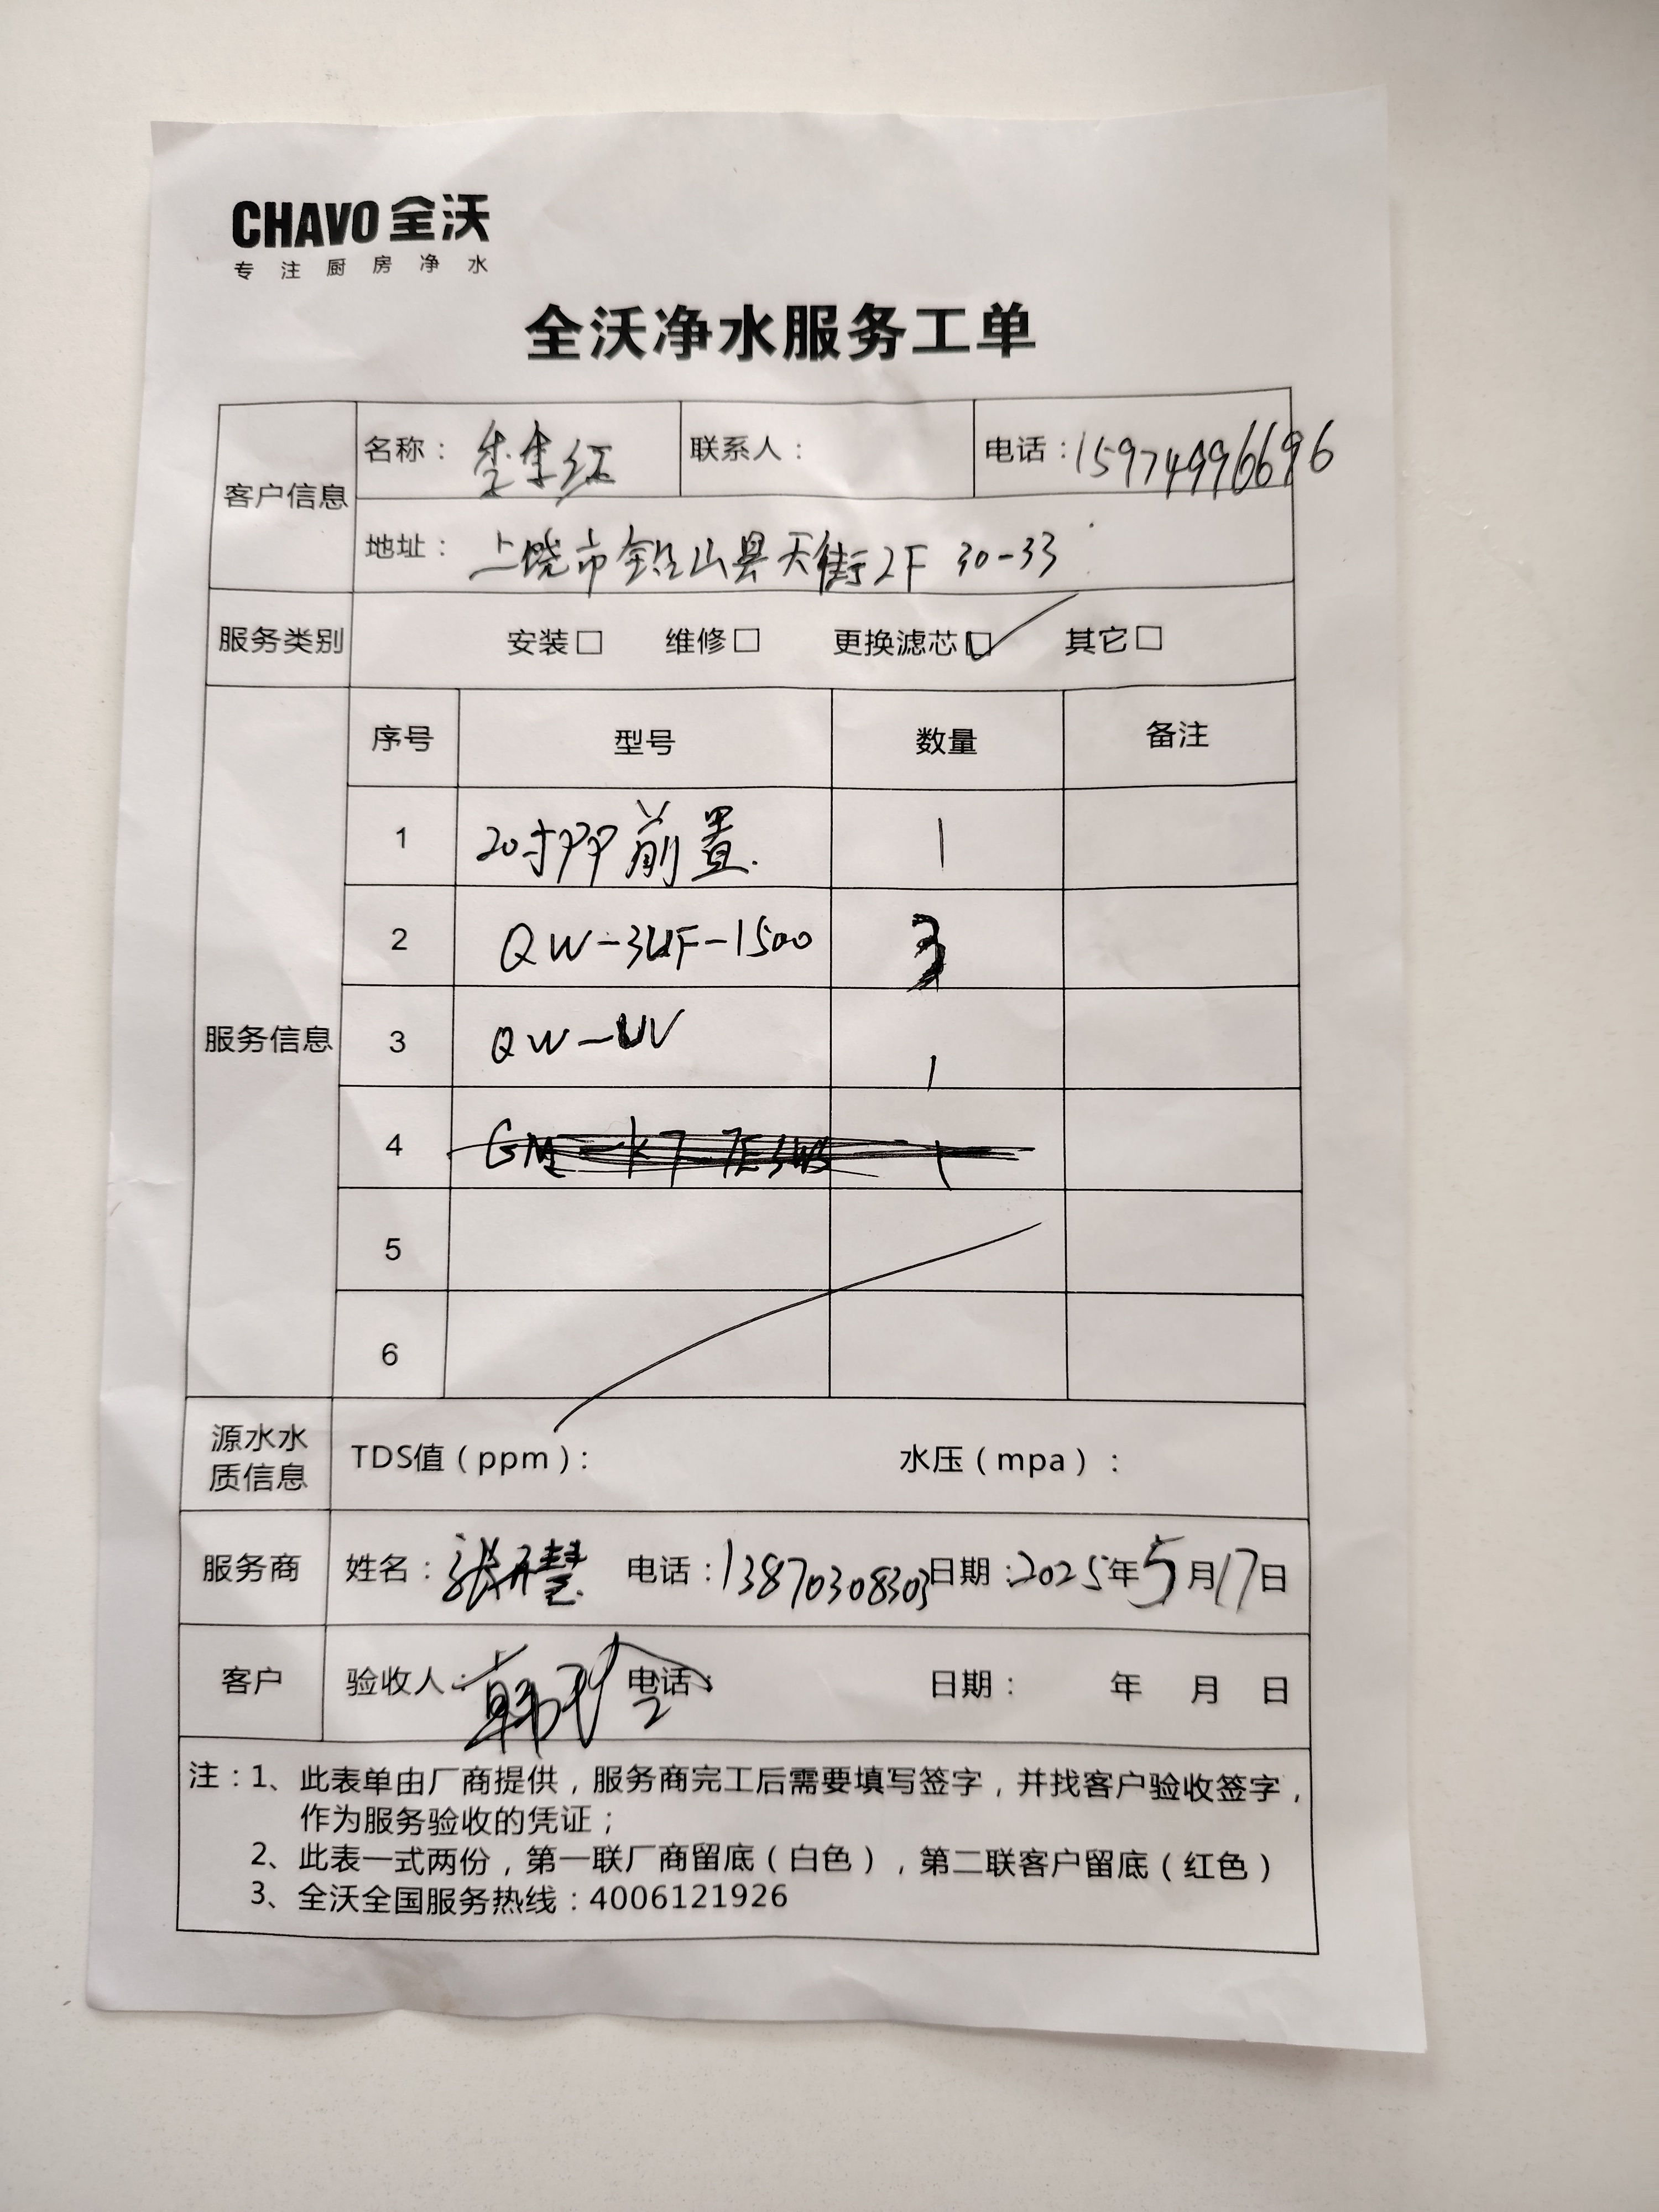 CHAVO 全沃
专注厨房净水
全沃净水服务工单
客户信息
名称： 李李红 联系人： 电话：15974996696
地址： 上饶市铅山县天街2F 30-33
服务类别 安装□ 维修□ 更换滤芯☑ 其它□
服务信息
序号 型号 数量 备注
1 20寸PP前置. 1
2 QW-3UF-1500 3
3 QW-UV 1
4
5
6
源水水质信息 TDS值（ppm）： 水压（mpa）：
服务商 姓名： 电话：13870308303 日期：2025年5月17日
客户 验收人： 电话： 日期： 年 月 日
注：1、此表单由厂商提供，服务商完工后需要填写签字，并找客户验收签字，
作为服务验收的凭证；
2、此表一式两份，第一联厂商留底（白色），第二联客户留底（红色）
3、全沃全国服务热线：4006121926